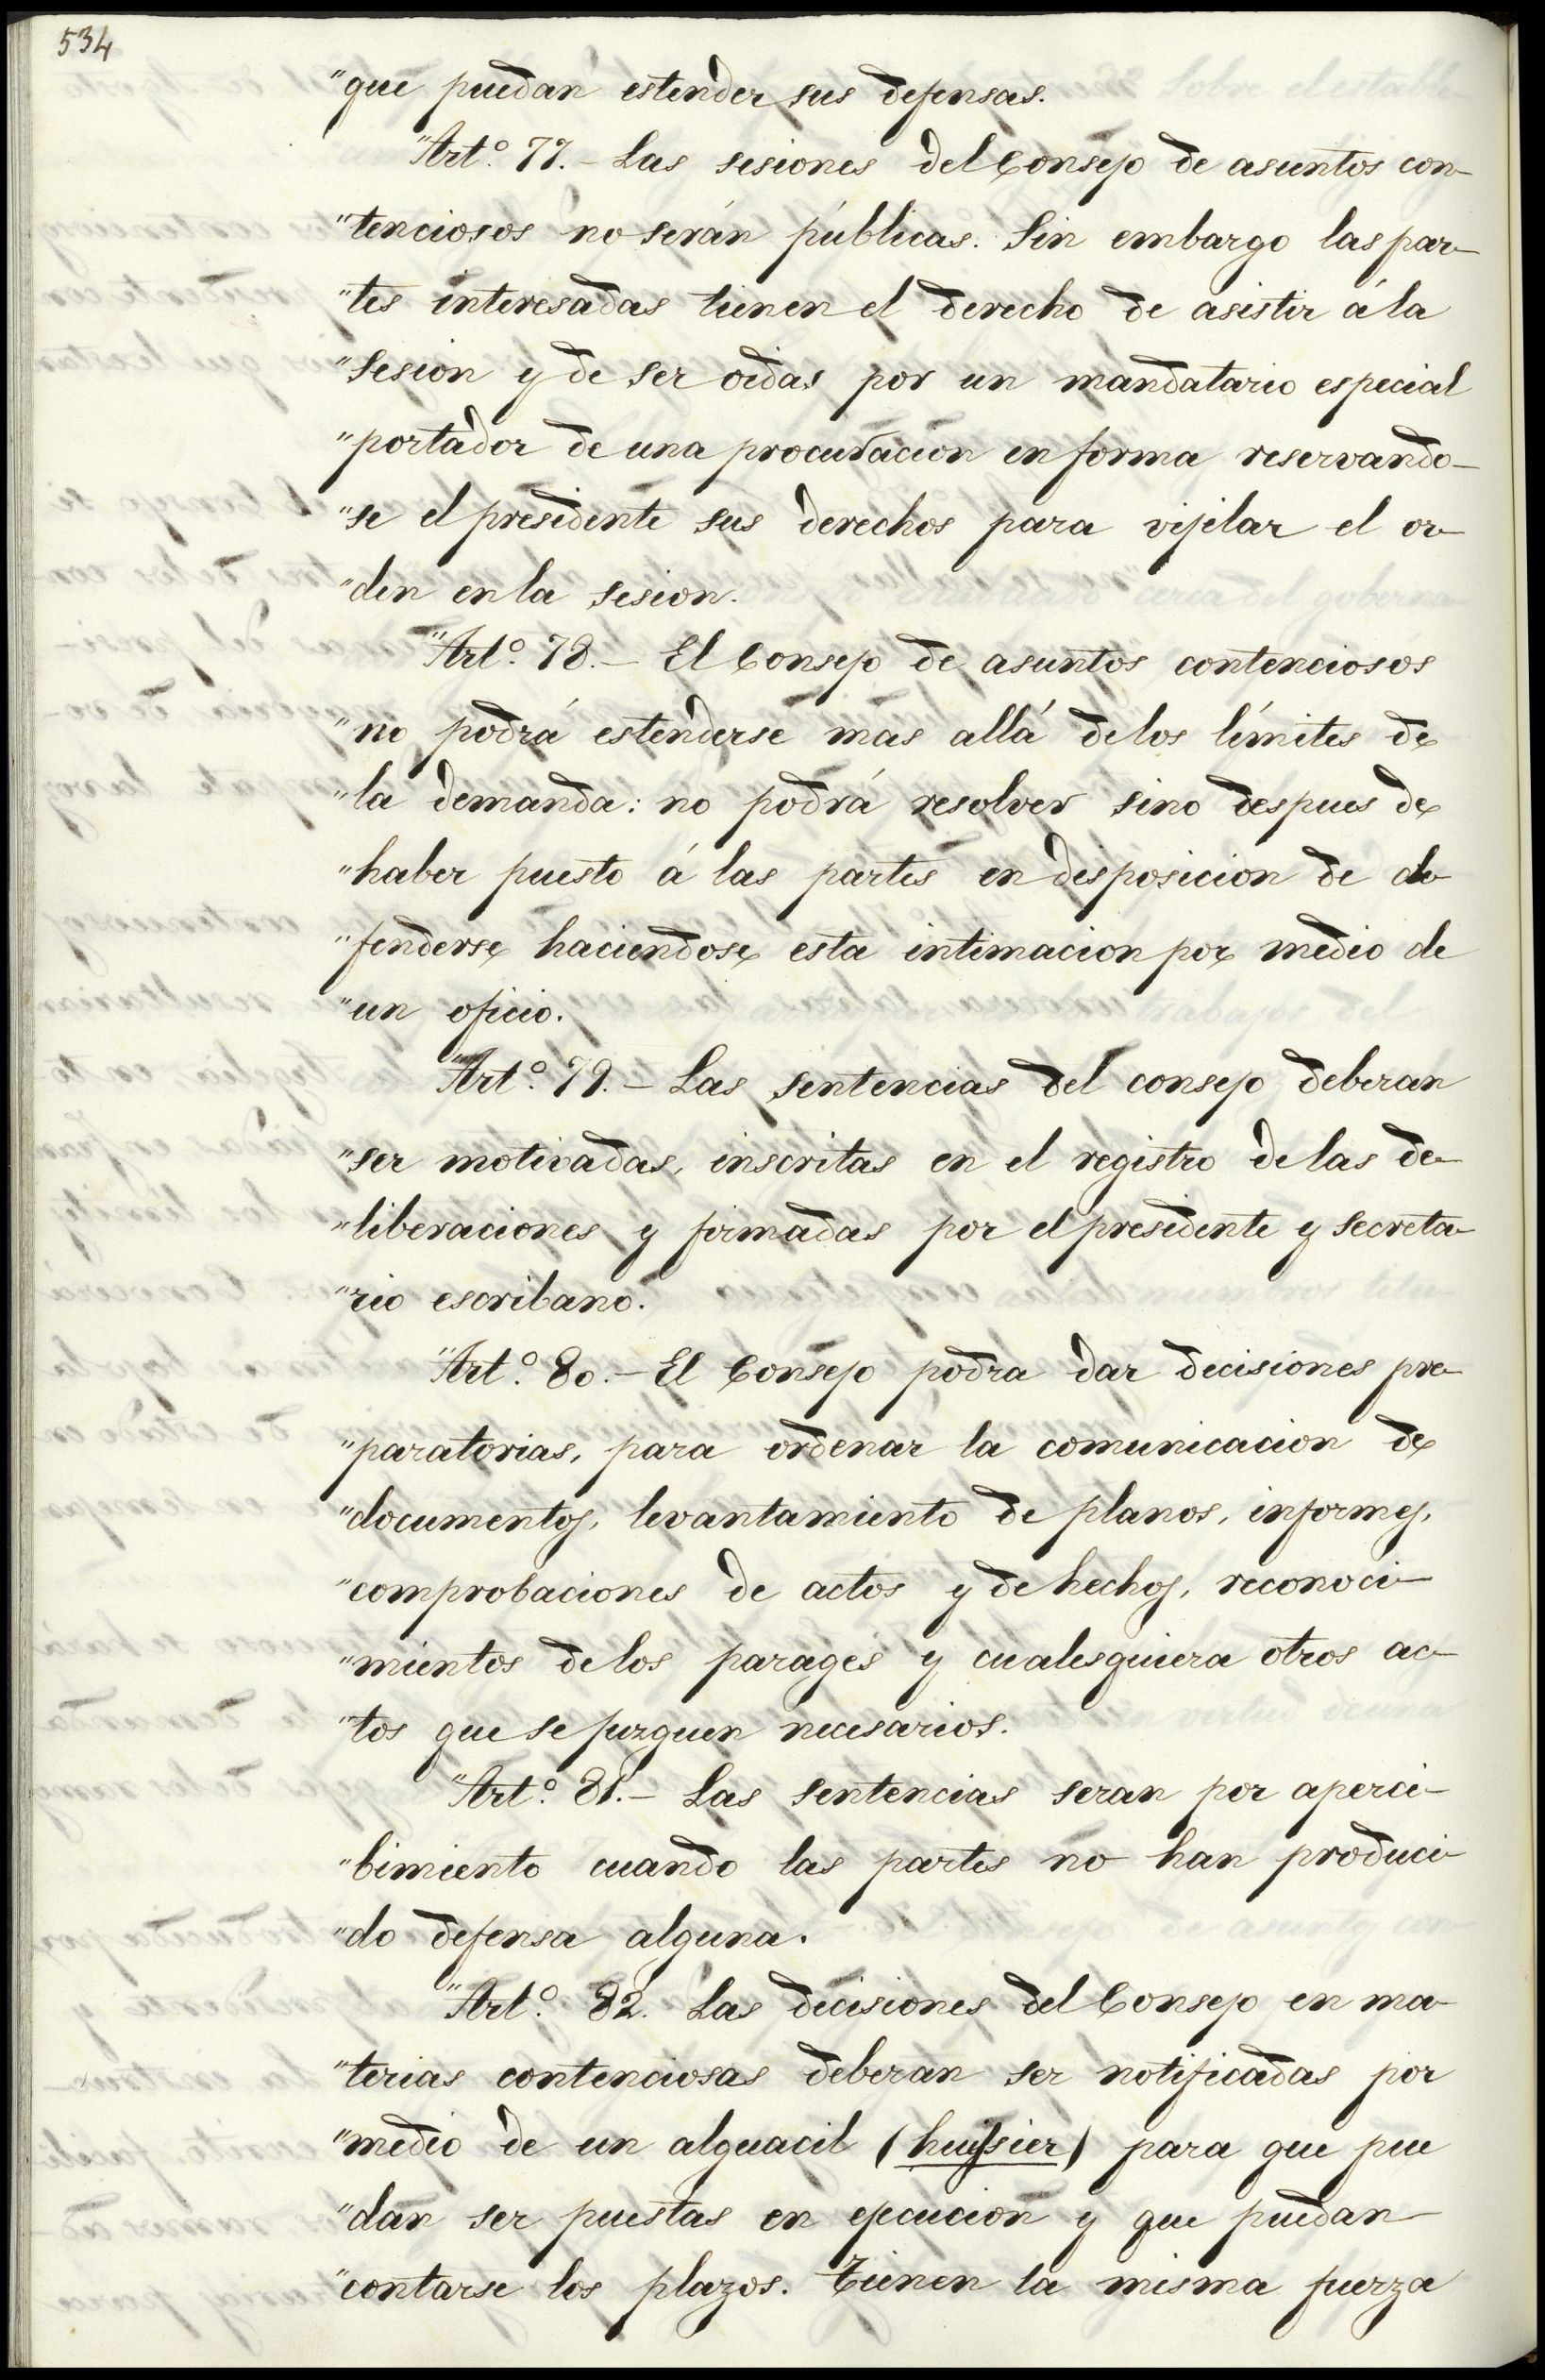 534
"que puedan estender sus defensas.
"Artº. 77.– Las sesiones del Consejo de asuntos con-
"tenciosos no serán públicas. Sin embargo las par-
"tes interesadas tienen el derecho de asistir á la
"sesion y de ser oidas por un mandatario especial
"portador de una procuracion en forma reservando-
"se el presidente sus derechos para vijilar el or-
"den en la sesion.
"Artº. 78.– El Consejo de asuntos contenciosos
"no podrá estenderse mas allá de los límites de
"la demanda: no podrá resolver sino despues de
"haber puesto á las partes en disposicion de de-
"fenderse haciendose esta intimacion por medio de
"un oficio.
"Artº. 79.– Las sentencias del consejo deberan
"ser motivadas, inscritas en el registro de las de-
"liberaciones y firmadas por el presidente y secreta-
"rio escribano.
"Artº. 80.– El Consejo podra dar decisiones pre-
"paratorias, para ordenar la comunicacion de
"documentos, levantamiento de planos, informes,
"comprobaciones de actos y de hechos, reconoci-
"mientos de los parages y cualesquiera otros ac-
"tos que se juzguen necesarios.
"Artº. 81.– Las sentencias seran por aperci-
"bimiento cuando las partes no han produci-
"do defensa alguna.
"Artº. 82. Las decisiones del Consejo en ma-
"terias contenciosas deberan ser notificadas por
"medio de un alguacil (huissier) para que pue
"dan ser puestas en ejecucion y que puedan
"contarse los plazos. Tienen la misma fuerza